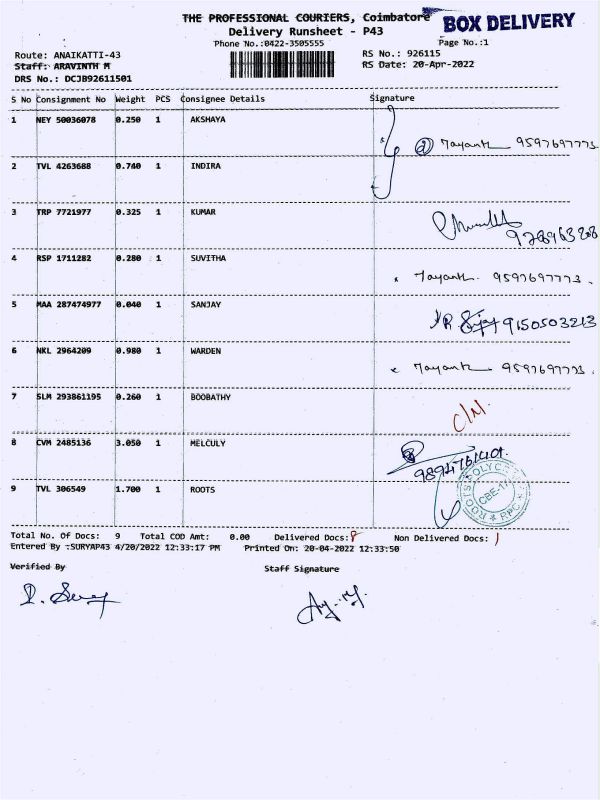 THE PROFESSIONAL COURIERS, Coimbatore
BOX DELIVERY
Delivery Runsheet - P43
Phone No.:0422-3505555
Page No.:1
Route: ANAIKATTI-43
RS No.: 926115
Staff: ARAVINTH M
RS Date: 20-Apr-2022
DRS No.: DCJB92611501
S No Consignment No Weight PCS Consignee Details Signature
1 NEY 50036078 0.250 1 AKSHAYA
2 Jayanth 9597697773
2 TVL 4263688 0.740 1 INDIRA
3 TRP 7721977 0.325 1 KUMAR
4 RSP 1711282 0.280 1 SUVITHA
Jayanth. 9597697773.
5 MAA 287474977 0.040 1 SANJAY
9150503213
6 NKL 2964209 0.980 1 WARDEN
Jayanth 9597697773.
7 SLM 293861195 0.260 1 BOOBATHY
C/N.
8 CVM 2485136 3.050 1 MELCULY
9 TVL 306549 1.700 1 ROOTS
CBE-17
RPC
Total No. Of Docs: 9 Total COD Amt: 0.00 Delivered Docs: 8 Non Delivered Docs: 1
Entered By :SURYAP43 4/20/2022 12:33:17 PM Printed On: 20-04-2022 12:33:50
Verified By Staff Signature